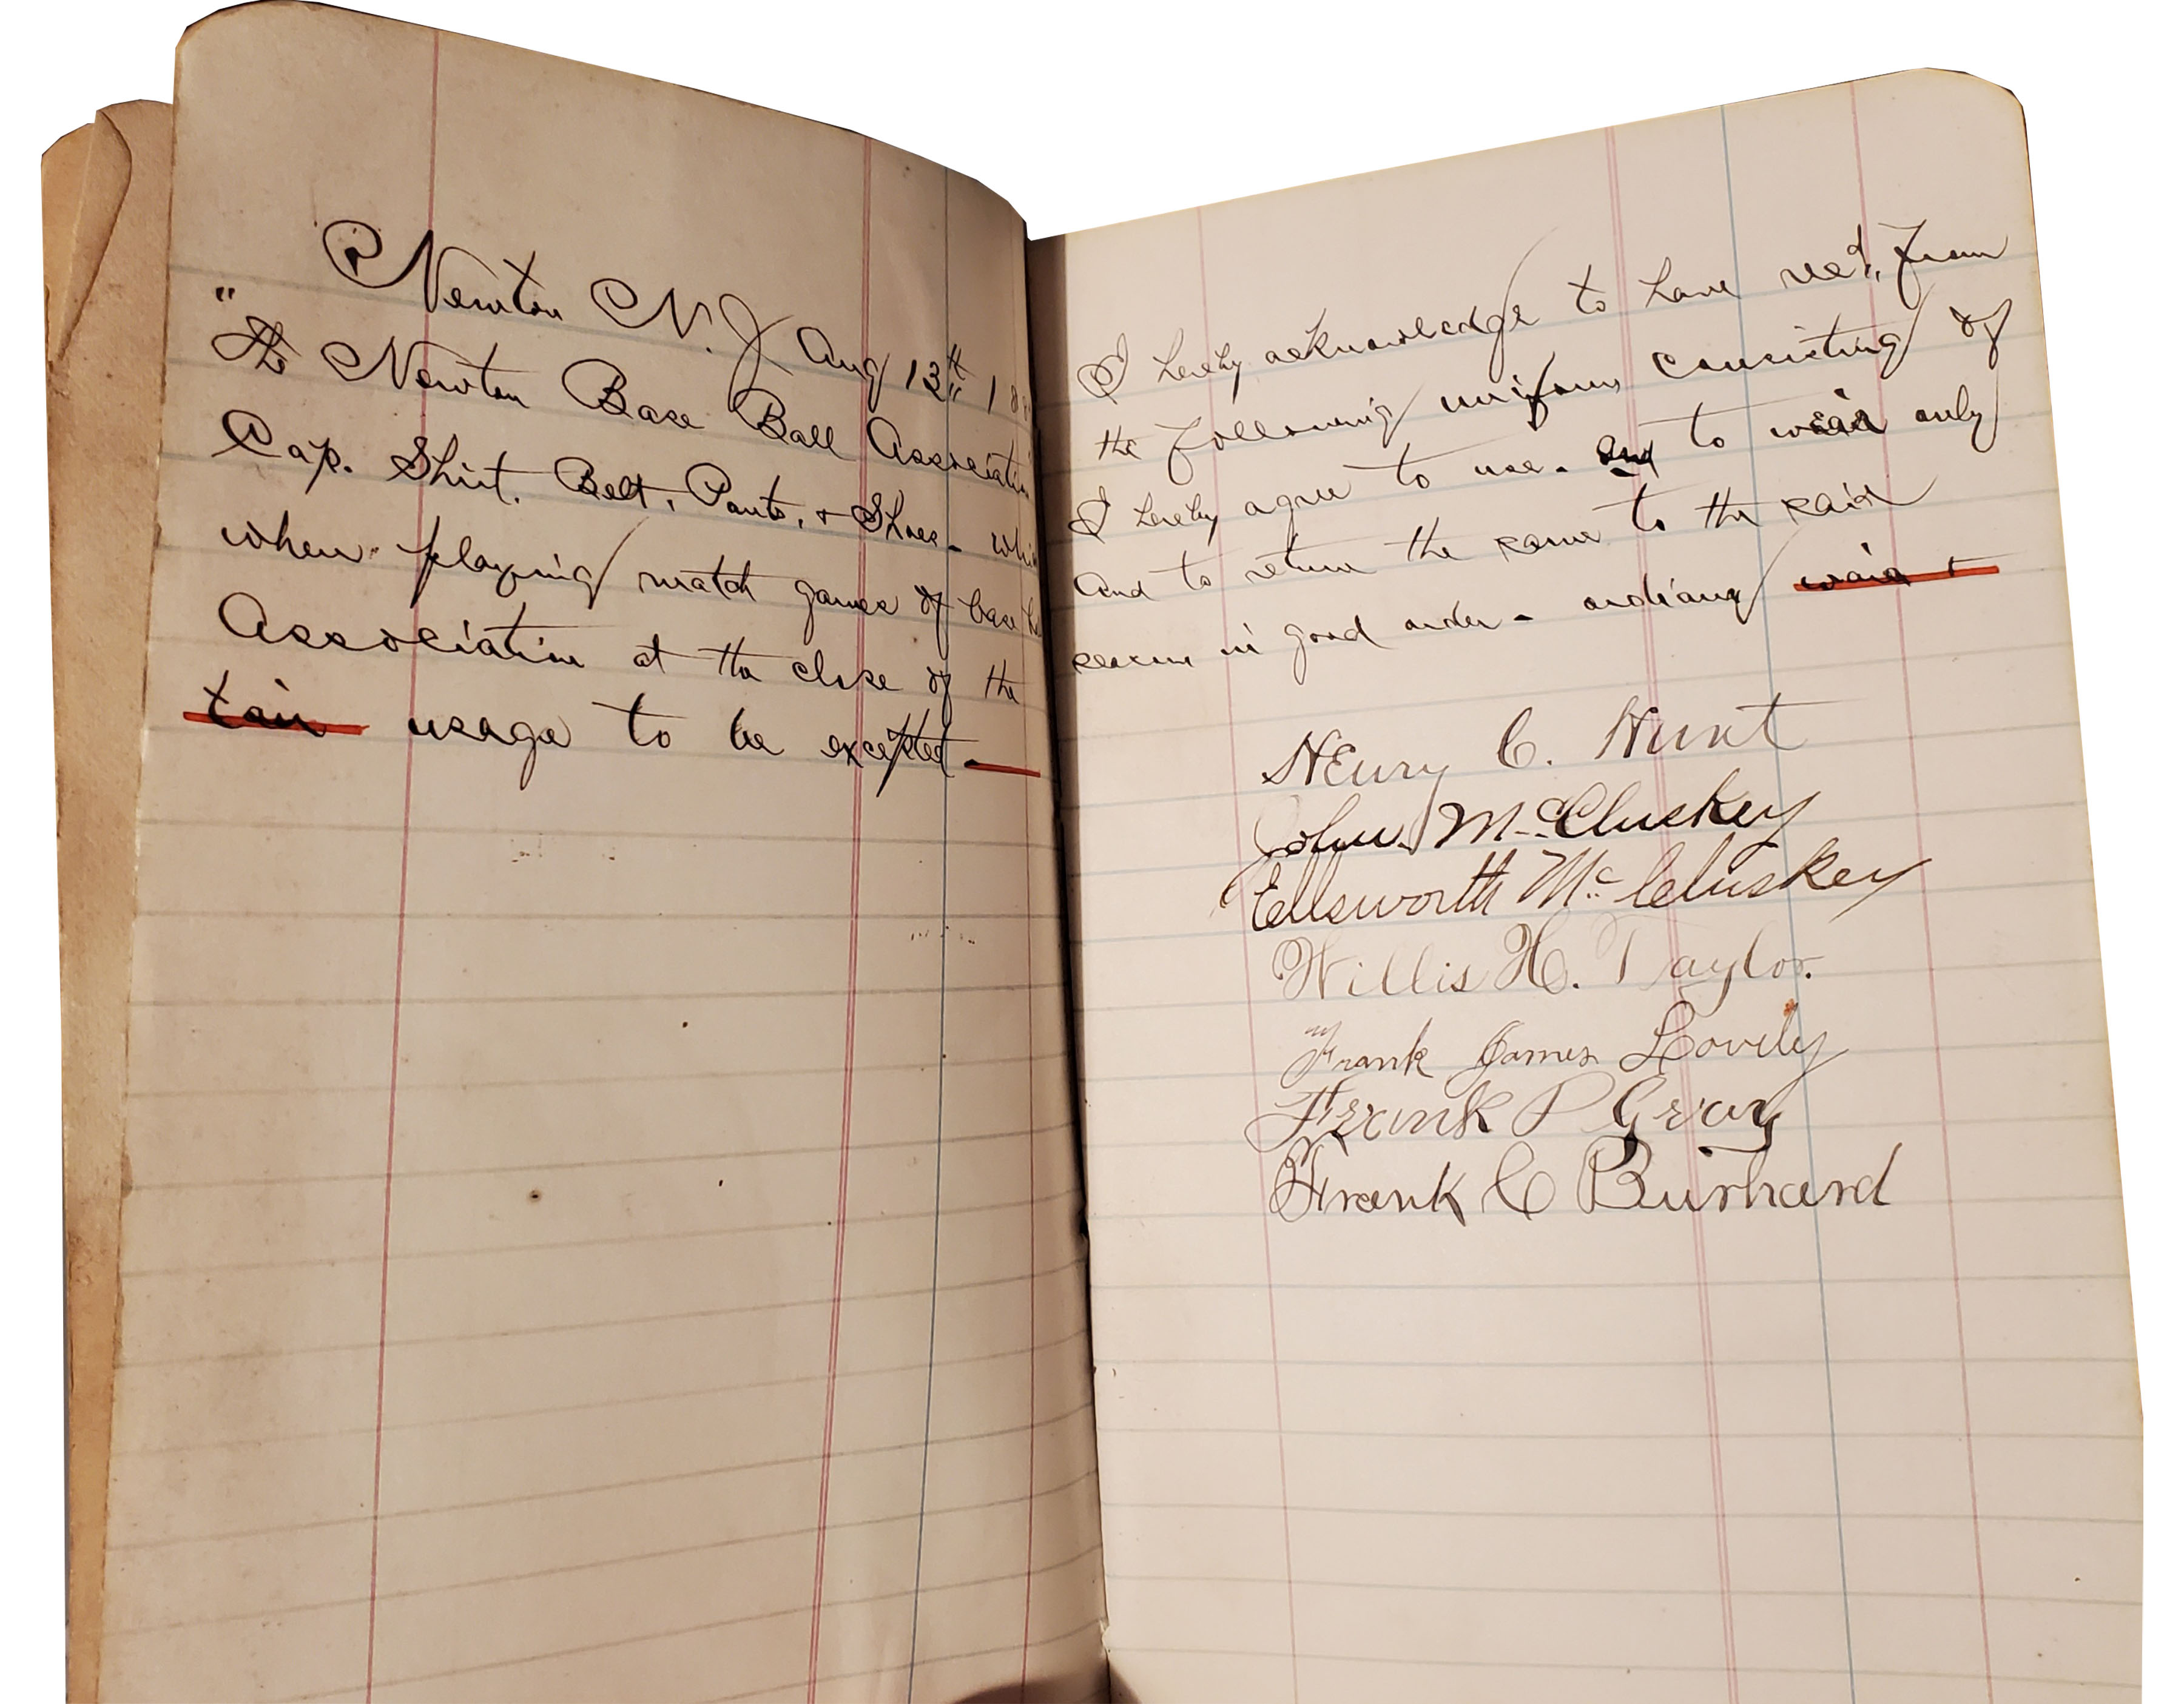 Newton N.J Aug 13th 18
I hereby acknowledge to have rec'd, from
"The Newton Base Ball Association the following uniform consisting of
Cap. Shirt. Belt, Pants, + Shoes- which I hereby agree to use- and to wear only
when playing match games of base ball And to return the same to the said
Association at the close of the season in good order- ordianry wair +
tair usage to be excepted.
Henry C. Hunt
John McCluskey
Ellsworth McCluskey
Willis H. Taylor.
Frank James Lovely
Frank P Gray
Frank C Burhard